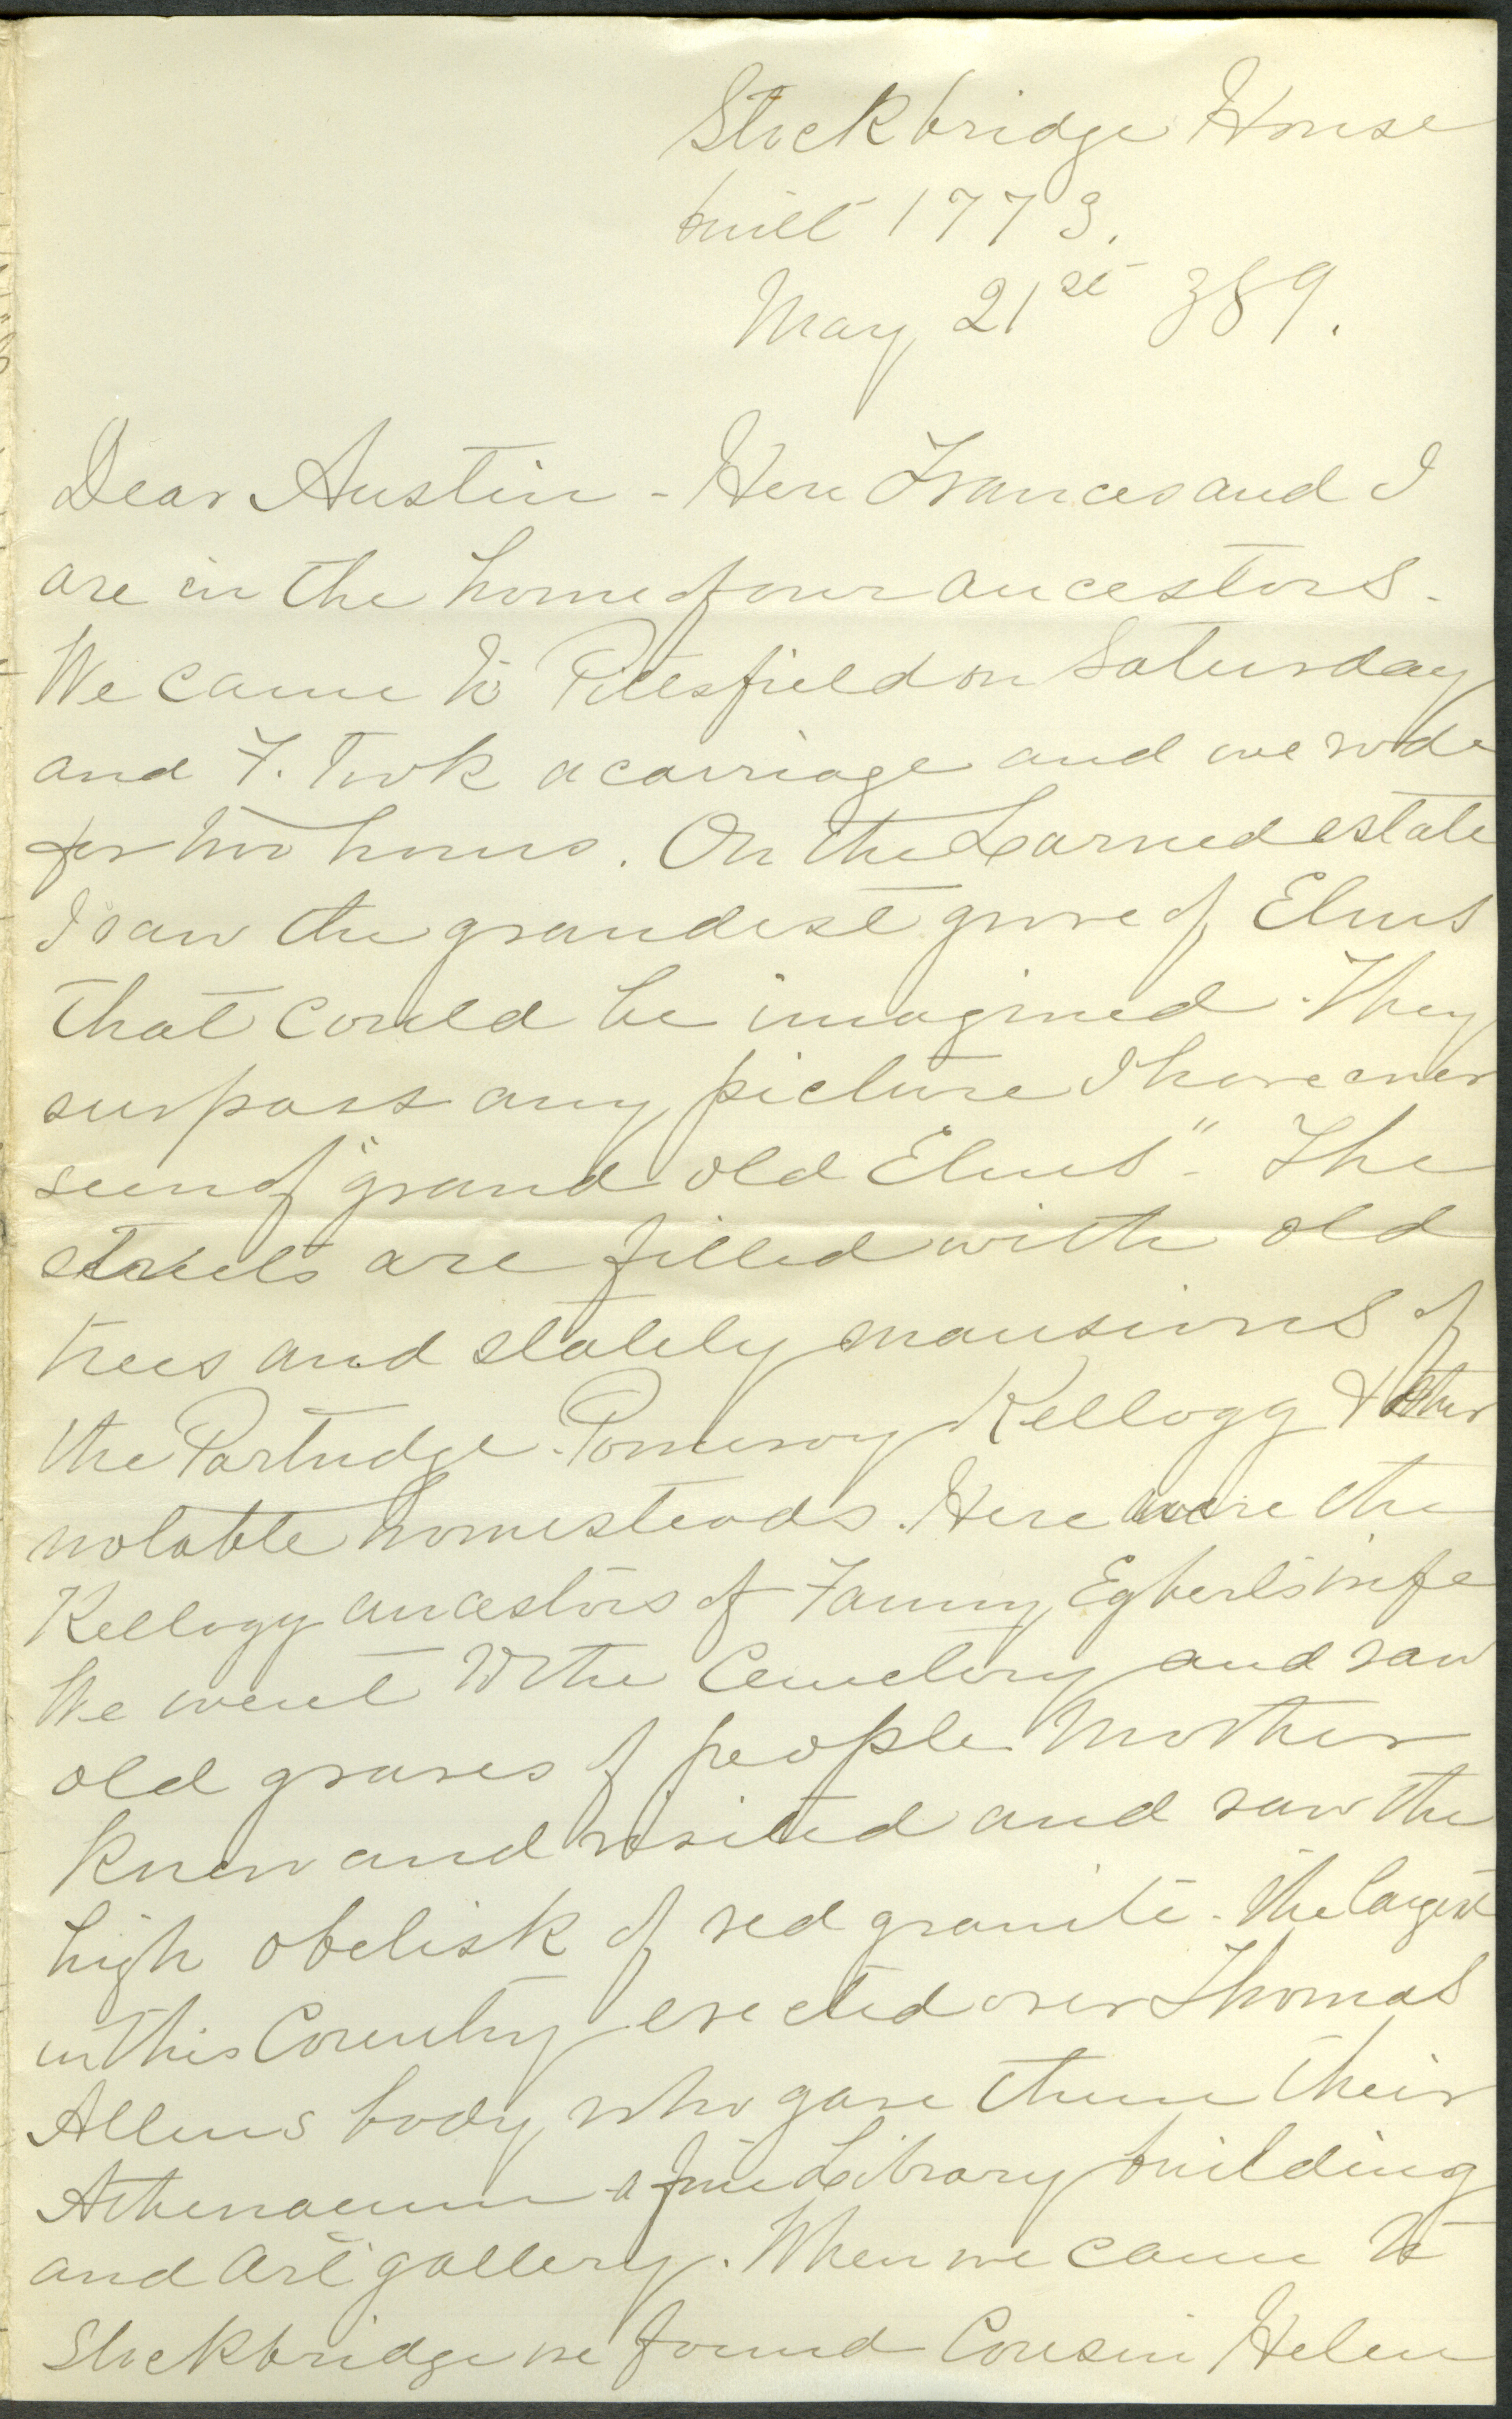 Stockbridge House
built 1773.
May 21st 389.
Dear Austin - Here Frances and I
are in the home of our ancestors.
We came to Pittsfield on Saturday
and F. took a carriage and we rode
for two hours. On the Larned estate
I saw the grandest grove of Elms
that could be imagined. They
surpass any picture I have ever
seen of "grand old Elms" - The
streets are filled with old
trees and stately mansions of
the Partridge - Pomeroy Kellogg & other
notable homesteads. Here were the
Kellogg ancestors of Fanny, Egberts wife
We went to the Cemetery and saw
old graves of people Mother
knew and visited and saw the
high obelisk of red granite - the largest
in this Country erected over Thomas
Allens body, who gave them their
Athenaeum - a fine Library building
and art gallery. When we came to
Stockbridge we found Cousin Helen